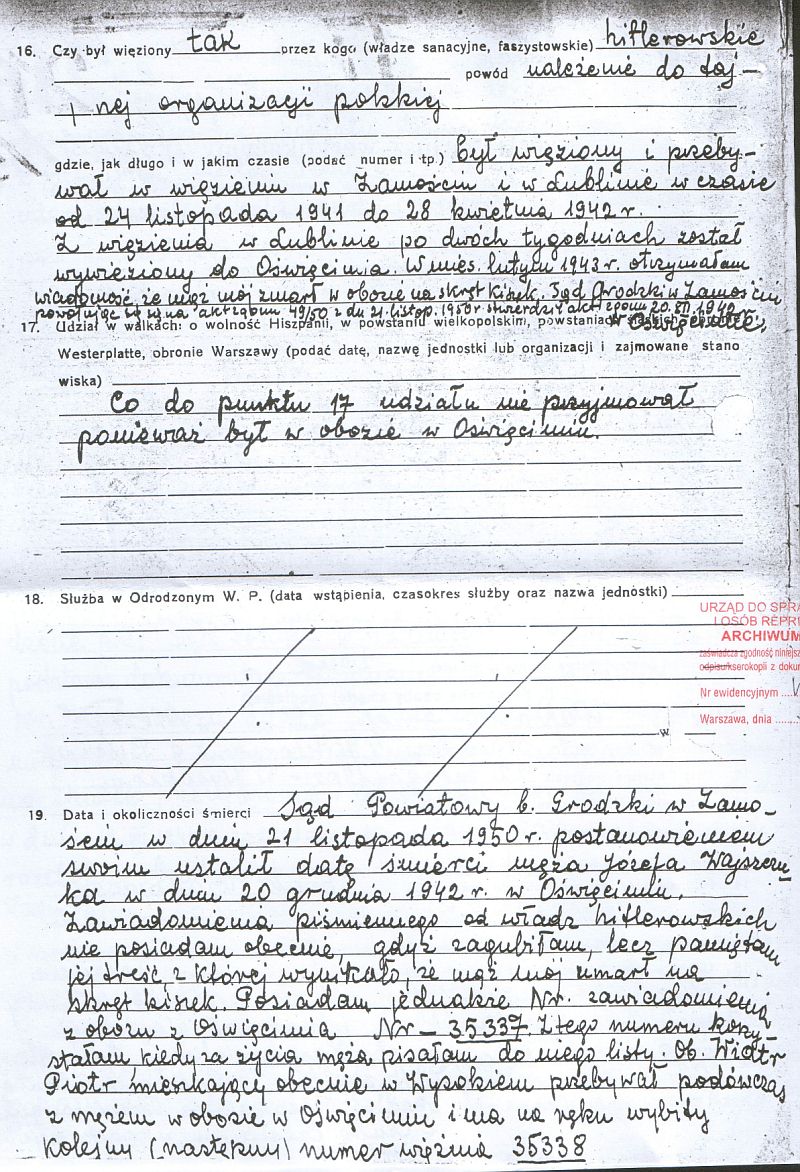 16. Czy był więziony tak przez kogo (władze sanacyjne, faszystowskie) hitlerowskie
powód należenie do taj-
nej organizacji polskiej
gdzie, jak długo i w jakim czasie (podać numer i tp.) był więziony i przeby-
wał w więzieniu w Zamościu i w Lublinie w czasie
od 24 listopada 1941 do 28 kwietnia 1942 r.
Z więzienia w Lublinie po dwóch tygodniach został
wywieziony do Oświęcimia. W mies. lutym 1943 r. otrzymałam
wiadomość, że mąż mój zmarł w obozie na skręt kiszek. Sąd Grodzki w Zamościu
powołując się na akt zgonu 49/50 z dn 21. listop. 1950 r. stwierdził akt zgonu 20. XII. 1942
w Oświęcimie,
17. Udział w walkach: o wolność Hiszpanii, w powstaniu wielkopolskim, powstaniach śląskich, obronie
Westerplatte, obronie Warszawy (podać datę, nazwę jednostki lub organizacji i zajmowane stano
wiska)
Co do punktu 17 udziału nie przyjmował
ponieważ był w obozie w Oświęcimiu.
18. Służba w Odrodzonym W. P. (data wstąpienia, czasokres służby oraz nazwa jednostki)
URZĄD DO SPRA
I OSÓB REPR
ARCHIWUM
zaświadcza zgodność niniejsz
odpisu/kserokopii z doku
Nr ewidencyjnym
Warszawa, dnia
w
19. Data i okoliczności śmierci Sąd Powiatowy b. Grodzki w Zamo-
ściu w dniu 21 listopada 1950 r. postanowieniem
swoim ustalił datę śmierci męża Józefa Wajszczu
ka w dniu 20 grudnia 1942 r. w Oświęcimiu.
Zawiadomienia piśmiennego od władz hitlerowskich
nie posiadam obecnie, gdyż zagubiłam, lecz pamiętam
jej treść z której wynikało, że mąż mój umarł na
skręt kiszek. Posiadam jednakże Nr. zawiadomienia
z obozu z Oświęcimia Nr – 35337. Z tego numeru korzy
stałam, kiedy za życia męża pisałam do niego listy. Ob. Wiatr
Piotr mieszkający obecnie w Wysokiem przebywał podówczas
z mężem w obozie w Oświęcimiu i ma na ręku wybity
kolejny (następny) numer więźnia 35338